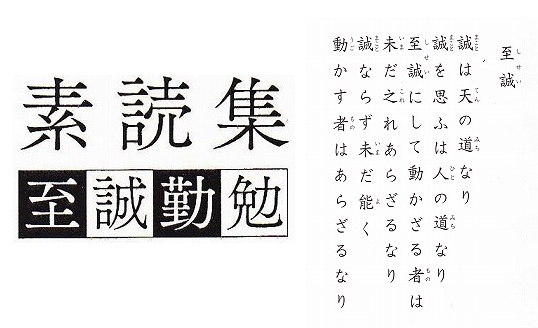 素読集
至誠勤勉
至誠
誠は天の道なり
誠を思ふは人の道なり
至誠にして動かざる者は
未だ之れあらざるなり
誠ならず未だ能く
動かす者はあらざるなり